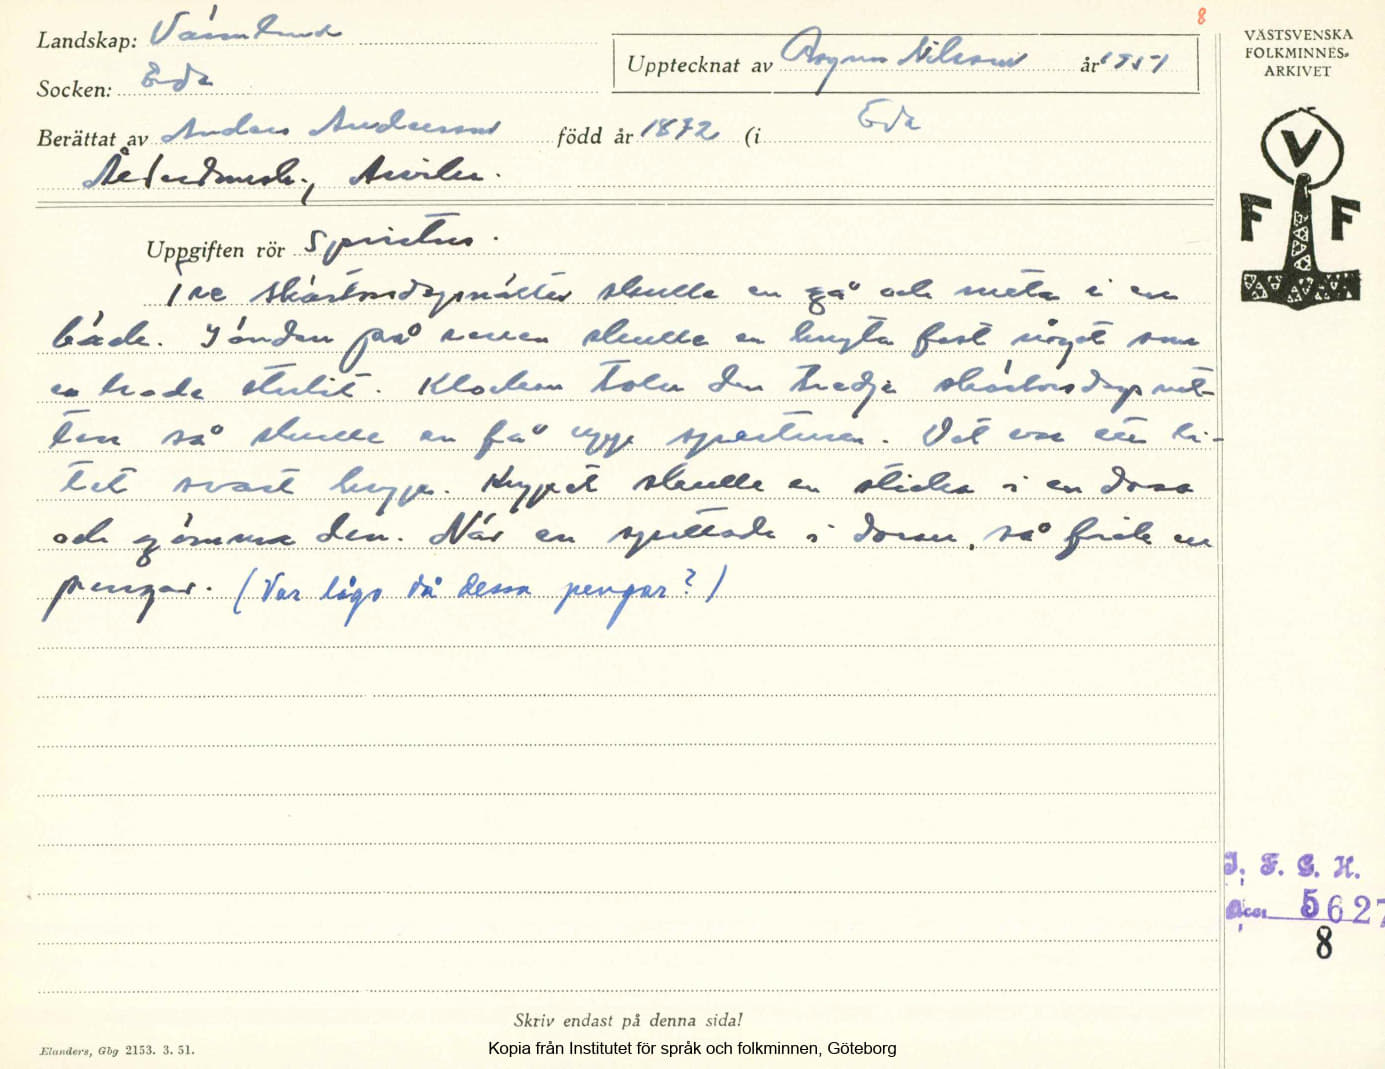 8
Landskap: Värmland
Socken: Eda
Upptecknat av Ragnar Nilsson år 1951
Berättat av Anders Andersson född år 1872 (i Eda
Åmotfors.
Uppgiften rör Spiritus.
Tre skärtorsdagsnätter skulle en gå och meta i en
bäck. I änden på reven skulle en knyta fast något som
en hade stulit. Klockan tolv den tredje skärtorsdagsnat-
ten så skulle en få upp spiritusen. Det var ett li-
tet svart kryp. Krypet skulle en sticka i en dosa
och gömma den. När en spottade i dosan, så fick en
pengar. (Var lågo då dessa pengar?)
VÄSTSVENSKA
FOLKMINNES-
ARKIVET
V
F F
I. F. G. H.
Acc. 5627
8
Skriv endast på denna sida!
Elanders, Gbg 2153. 3. 51.
Kopia från Institutet för språk och folkminnen, Göteborg